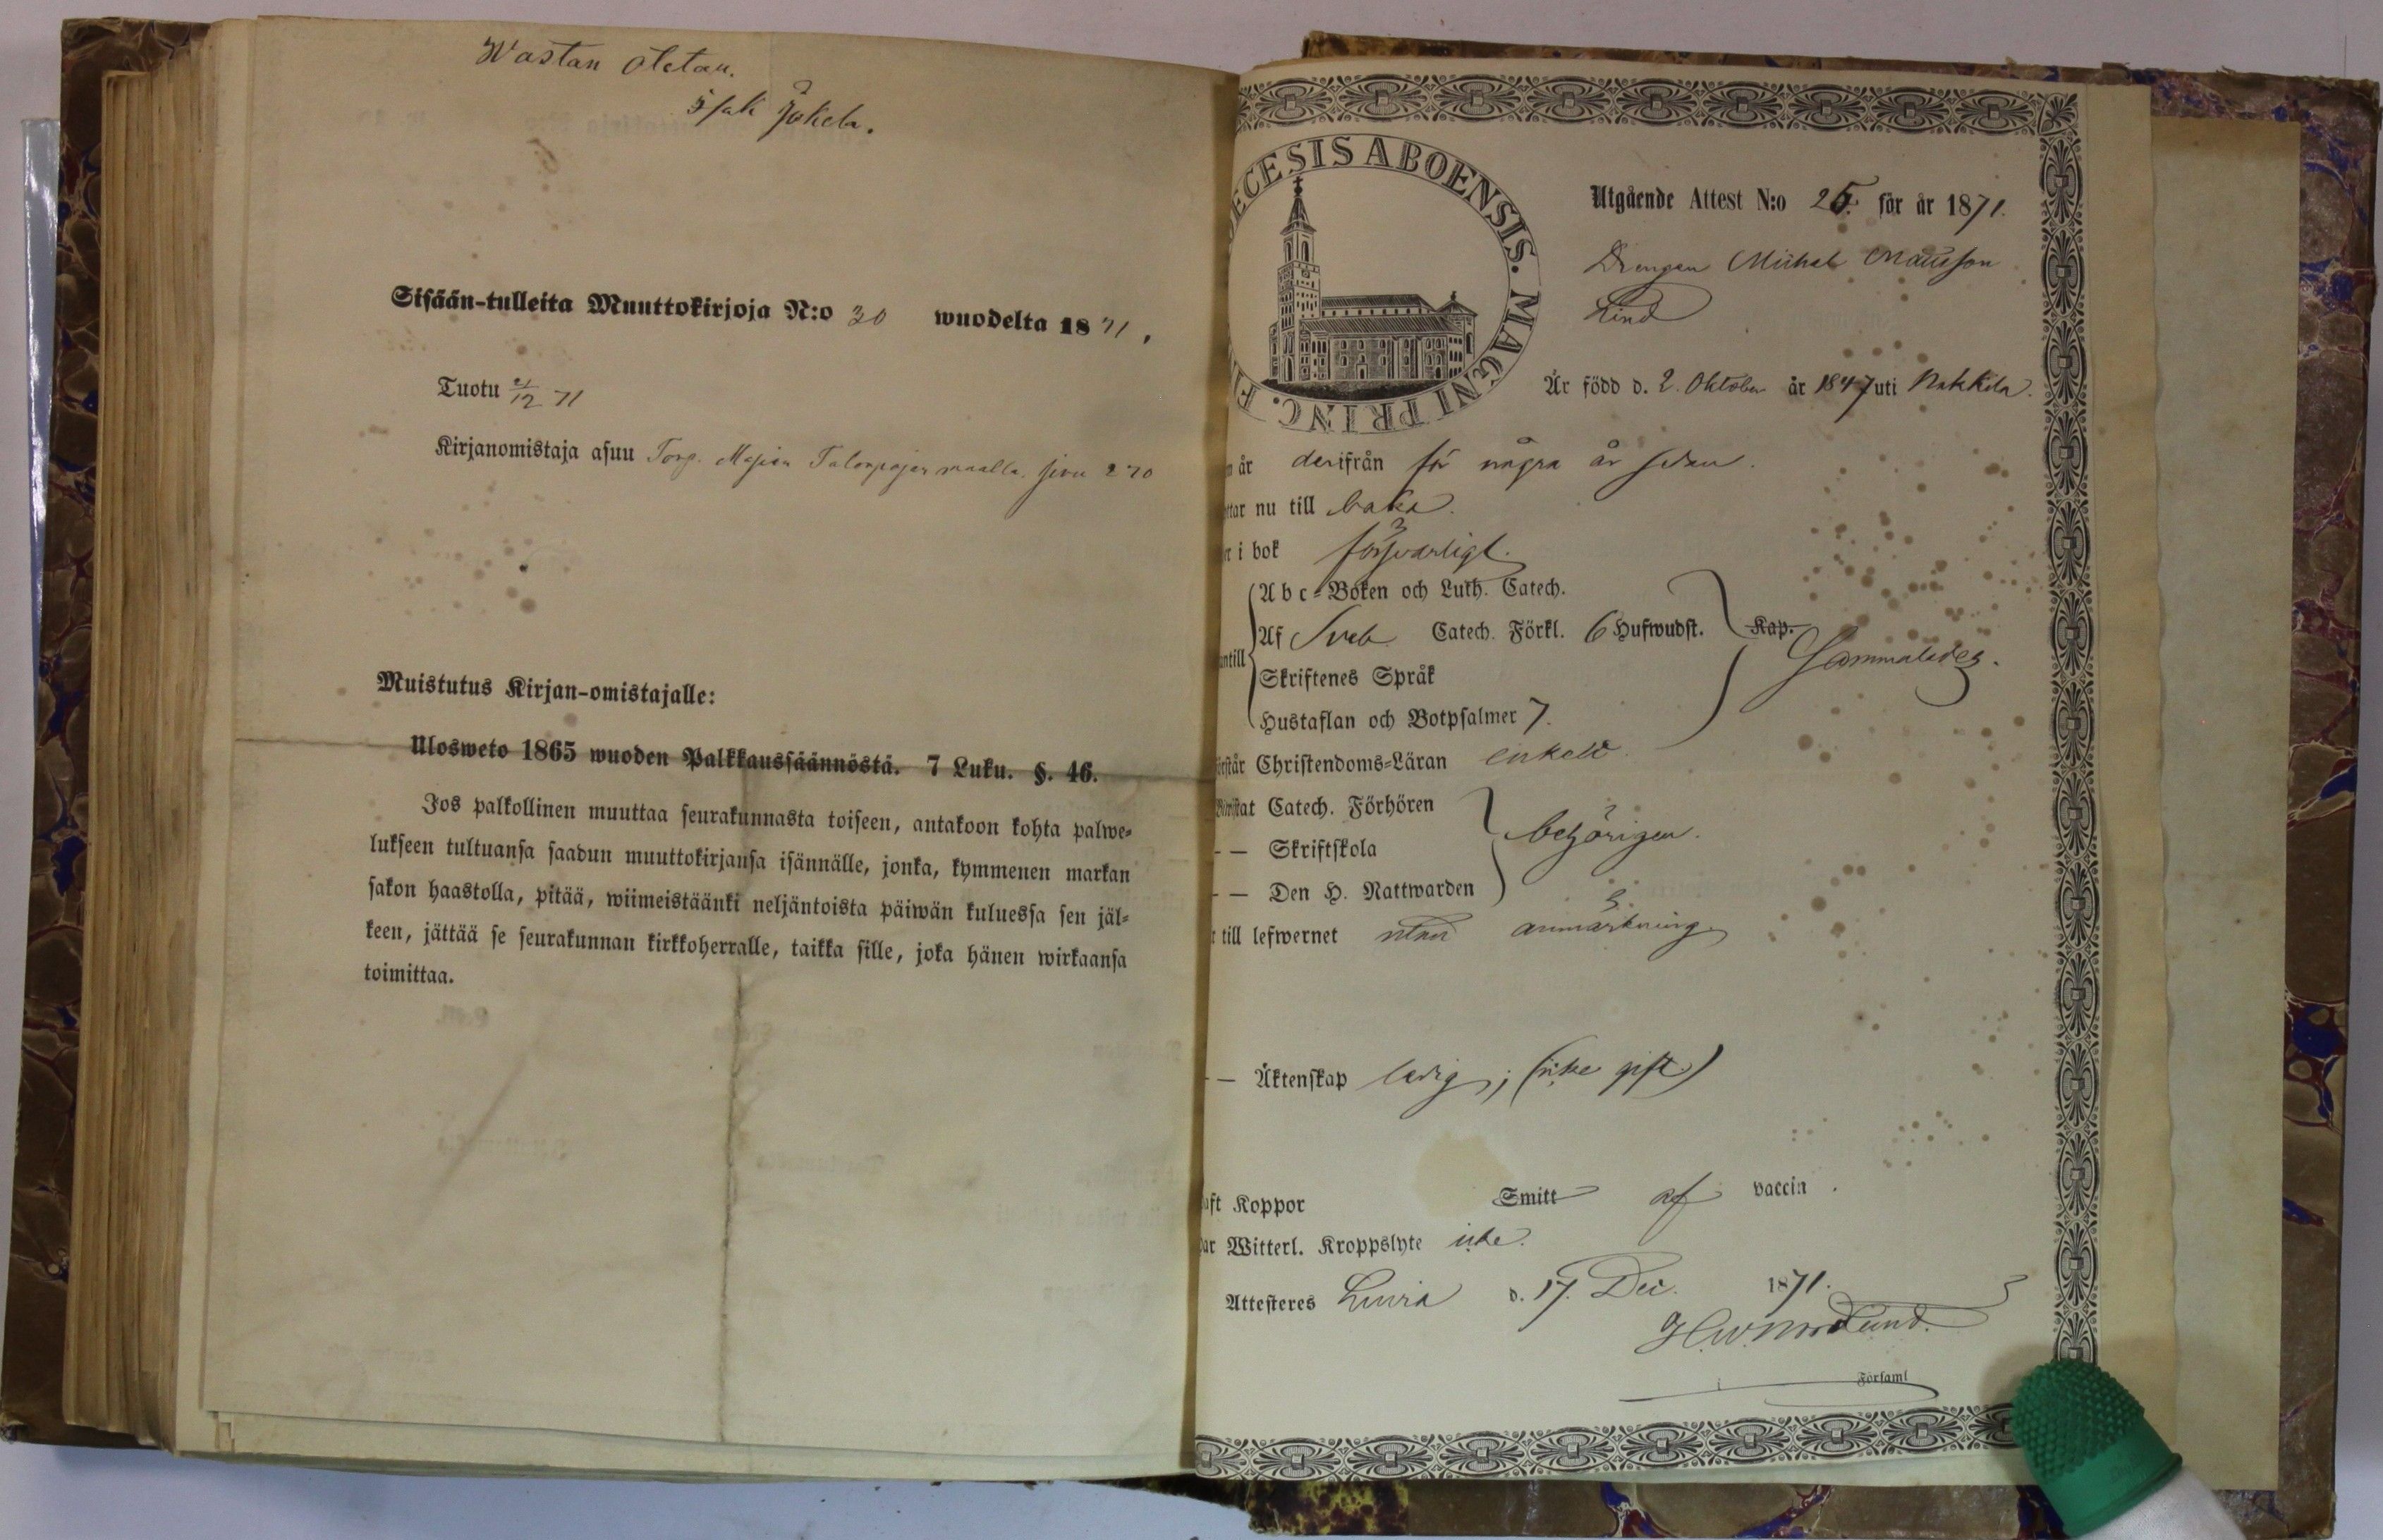 Wastan otetan.
Isak Jokela.
Sisään-tulleita Muuttokirjoja N:o 30 wuodelta 1871.
Tuotu 21/12 71
Kirjanomistaja asuu Torp. Talonpojan maalla. sivu 270
Muistutus Kirjan-omistajalle:
Ulosweto 1865 wuoden Palkkaussäännöstä. 7 Luku. §. 46.
Jos palkollinen muuttaa seurakunnasta toiseen, antakoon kohta palwe-
lukseen tultuansa saadun muuttokirjansa isännälle, jonka, kymmenen markan
sakon haastolla, pitää, wiimeistäänki neljäntoista päiwän kuluessa sen jäl-
keen, jättää se seurakunnan kirkkoherralle, taikka sille, joka hänen wirkaansa
toimittaa.
ECESIS ABOENSIS. MAGNI PRINC. F
Utgående Attest N:o 25. för år 1871.
Drengen Michel Matsson
Lind
Är född d. 2. Oktober år 1847 uti Nakkila.
n år derifrån för några år sedan.
ttar nu till baka.
er i bok försvarligt.
Abc-Boken och Luth. Catech.
Af Sveb. Catech. Förkl. 6 Hufwudst. Kap.
untill
Sammaledes.
Skriftenes Språk
Hustaflan och Botpsalmer 7.
örstår Christendoms-Läran enkelt
Bewistat Catech. Förhören
– – Skriftskola behörigen.
– – Den H. Nattwarden
r till lefwernet utan anmärkning
– – Äktenskap ledig; (icke gift)
aft Koppor Smitt af vaccin.
ar Witterl. Kroppslyte icke.
Attesteres Luvia d. 17. Dec. 1871.
H. W. Nordlund.
Församl